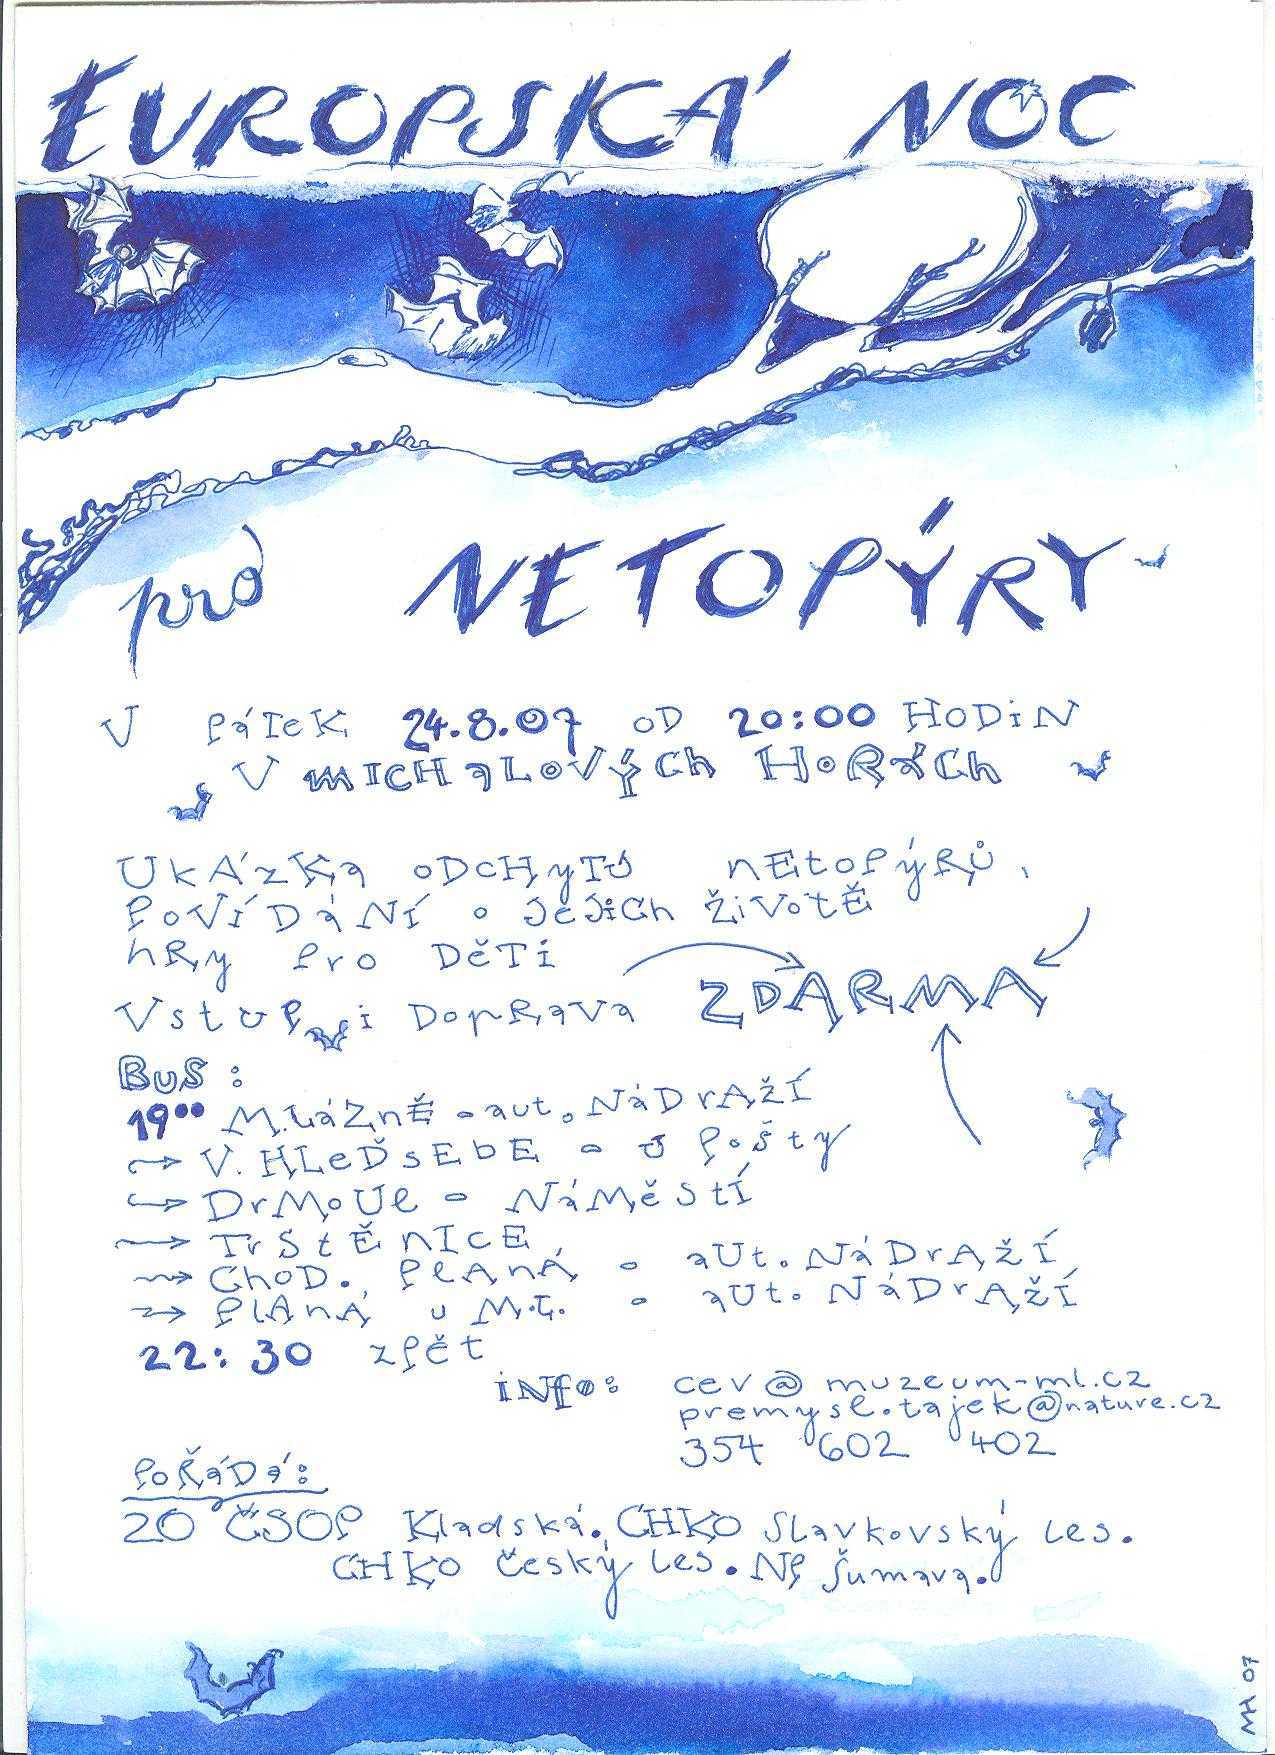 EVROPSKÁ NOC
pro NETOPÝRY
V PÁTEK 24.8.07 OD 20:00 HODIN
V MICHALOVÝCH HORÁCH
UKÁZKA ODCHYTŮ NETOPÝRŮ,
POVÍDÁNÍ O JEJICH ŽIVOTĚ
HRY PRO DĚTI
VSTUP I DOPRAVA ZDARMA
BUS:
19⁰⁰ M.LÁZNĚ - AUT. NÁDRAŽÍ
→ V. HLEĎSEBE - U POŠTY
→ DRMOUL - NÁMĚSTÍ
→ TRSTĚNICE
→ CHOD. PLANÁ - AUT. NÁDRAŽÍ
→ PLANÁ U M.L. - AUT. NÁDRAŽÍ
22:30 ZPĚT
INFO: cev@muzeum-ml.cz
premysl.tajek@nature.cz
354 602 402
POŘÁDÁ:
ZO ČSOP Kladská. CHKO Slavkovský les.
CHKO Český les. NP Šumava.
MH 07